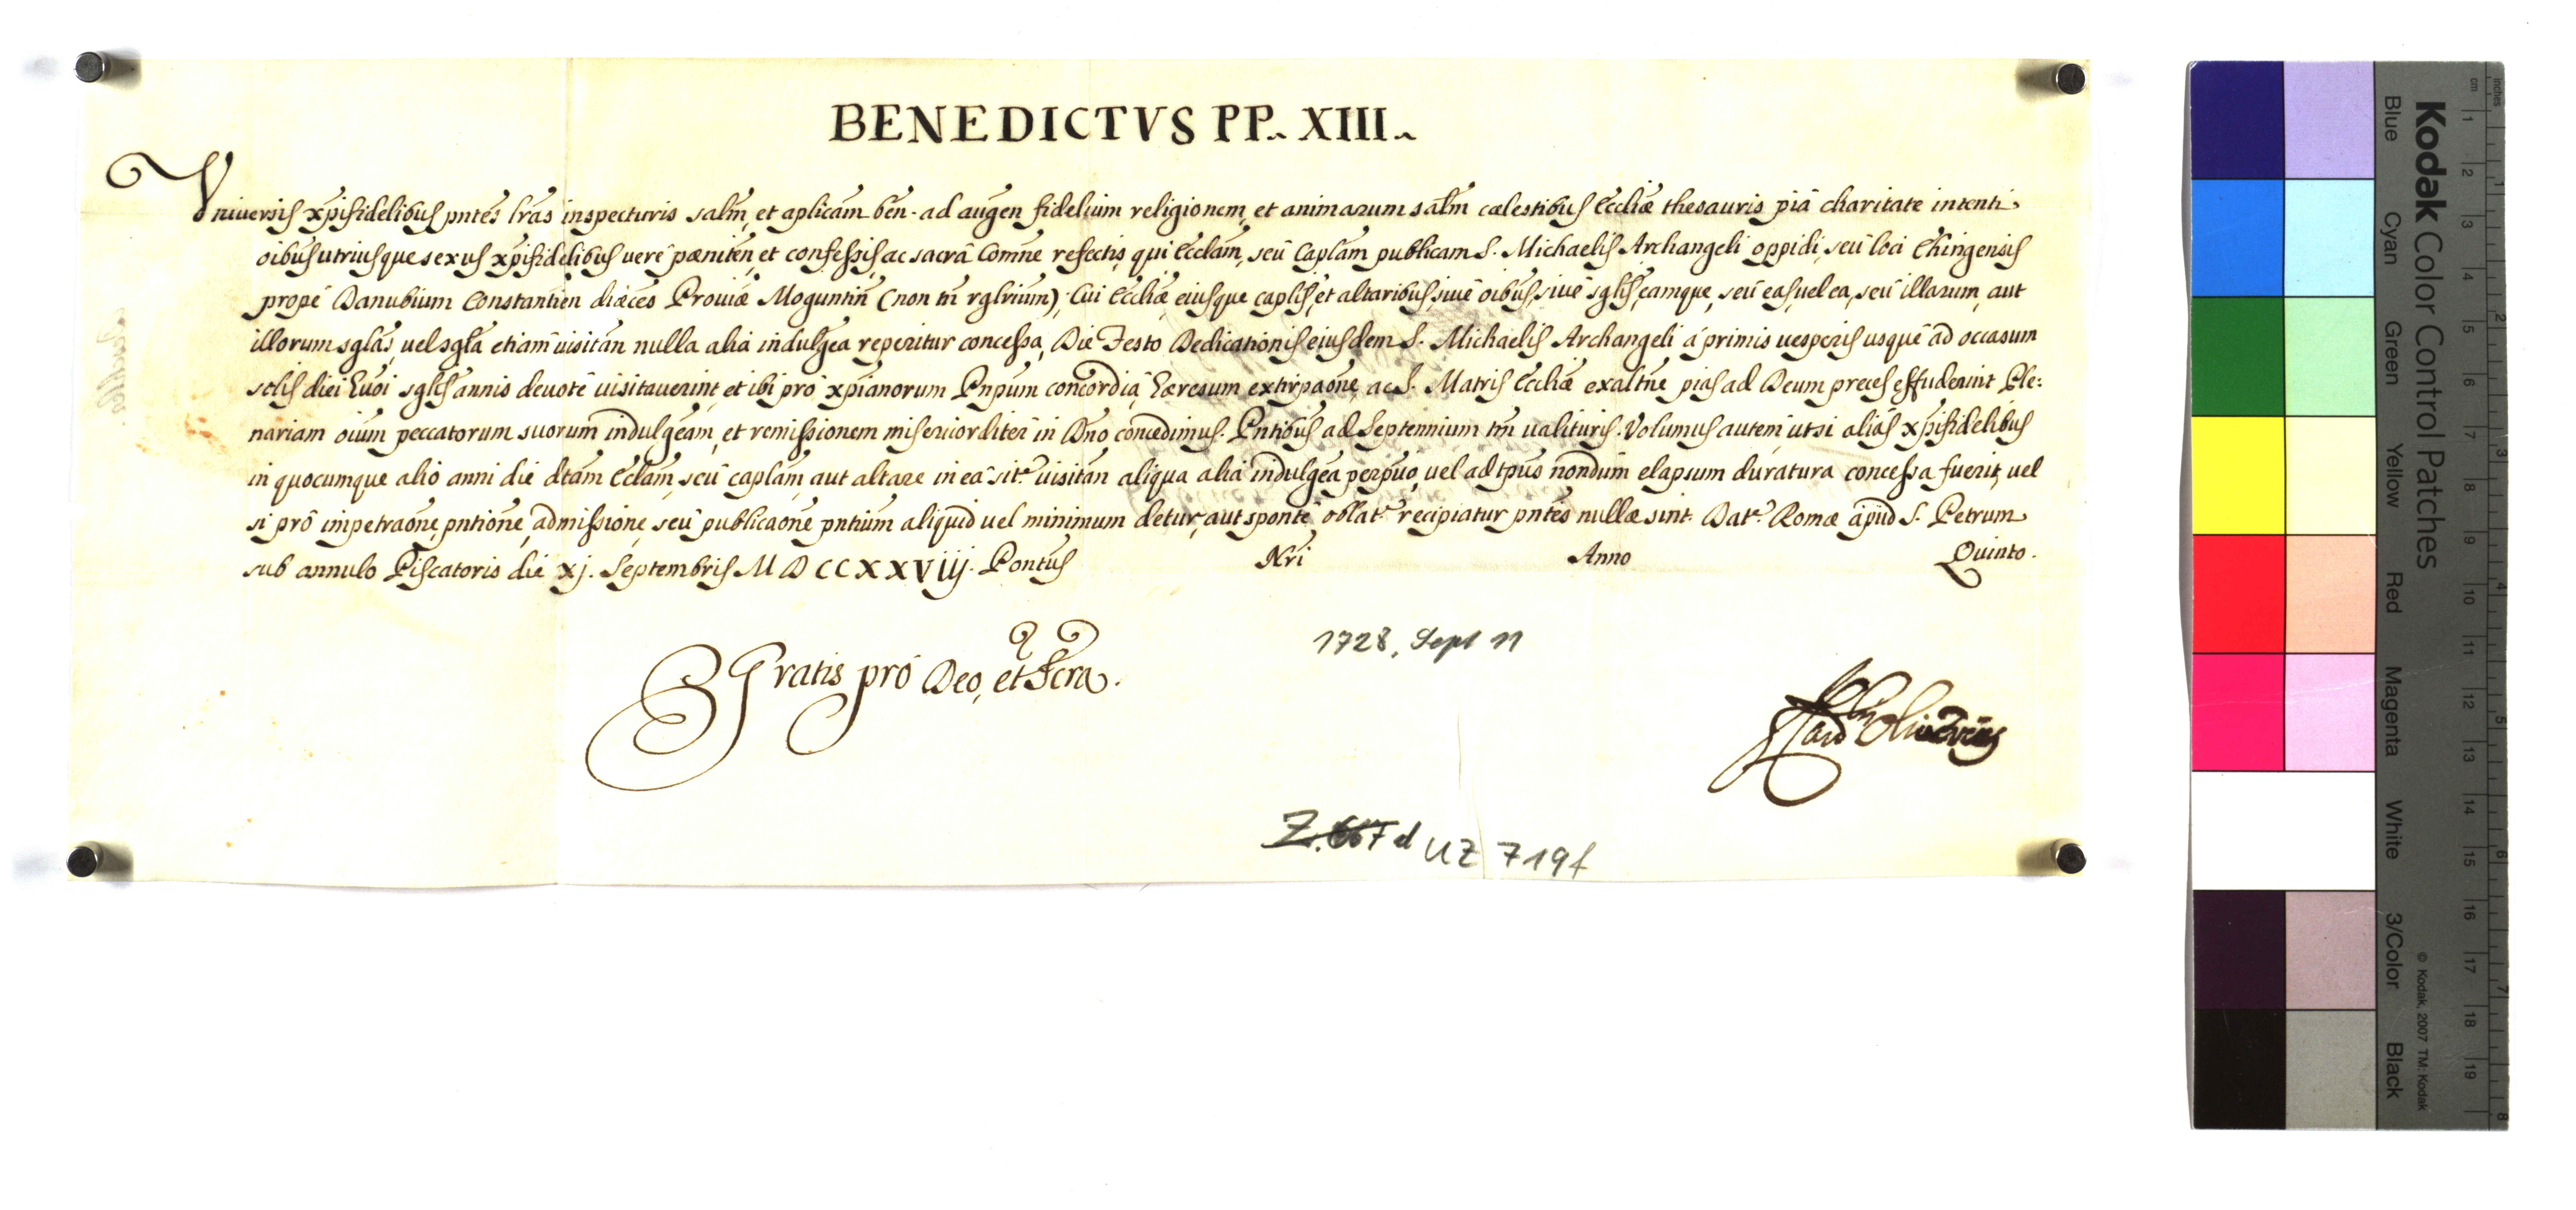 BENEDICTVS PP. XIII.
Vniuersis xp̄ifidelibus pn̄tes lr̄as inspecturis salm̄, et ap̄licam ben. ad augen̄ fidelium religionem, et animarum salm̄ cælestibus Ecclīæ thesauris piâ charitate intenti
oībus utriusque sexus xp̄ifidelibus uerè pæniten̄, et confessis, ac sacrâ Com̄ne refectis, qui Eccl̄am, seù Capl̄am publicam S. Michaelis Archangeli oppidi, seù loci Ehingensis
propè Danubium Constantien̄ diæces Prouīæ Moguntin̄ (non tn̄ rgl̄rium), Cui Ecclīæ, eiusque capl̄is, et altaribus, siuè oībus, siuè sgl̄is, eamque, seù eas, uel ea, seù illarum, aut
illorum sgl̄as, uel sgl̄a etiam uisitan̄ nulla alia indulgēa reperitur concessa, Die Festo Dedicationis eiusdem S. Michaelis Archangeli à primis uesperis usquè ad occasum
solis diei hūoi sgl̄is annis deuotè uisitauerint, et ibi prò xp̄ianorum Pn̄pum concordiâ, hæresum extirpaōne, ac S. Matris Ecclīæ exaltn̄e pias ad Deum preces effuderint Ple:
nariam oīum peccatorum suorum indulgēam, et remissionem misericorditer in Dn̄o concedimus. Pn̄tibus ad Septennium tm̄ ualituris. Volumus autem, ut si aliàs xp̄ifidelibus
in quocumque alio anni die dc̄tam Eccl̄am, seù capl̄am, aut altare in eâ sit.e uisitan̄ aliqua alia indulgēa perpūo, uel ad tp̄us nondùm elapsum duratura concessa fuerit, uel
si prò impetraōne, pn̄tione, admissione, seù publicaōne pn̄tium aliquid uel minimum detur, aut spontè oblat.e recipiatur pn̄tes nullæ sint. Dat.e Romæ apud S. Petrum
sub annulo Piscatoris die xj. Septembris MDCCXXViij. Pontūs Nr̄i Anno Quinto.
Gratis prò Deo, et Scr̄a.
1728, Sept 11
Card Oliverius
Z. 667 d UZ 719f
Kodak Color Control Patches
Blue Cyan Green Yellow Red Magenta White 3/Color Black
© Kodak, 2007 TM: Kodak
cm 1 2 3 4 5 6 7 8 9 10 11 12 13 14 15 16 17 18 19
inches 1 2 3 4 5 6 7 8